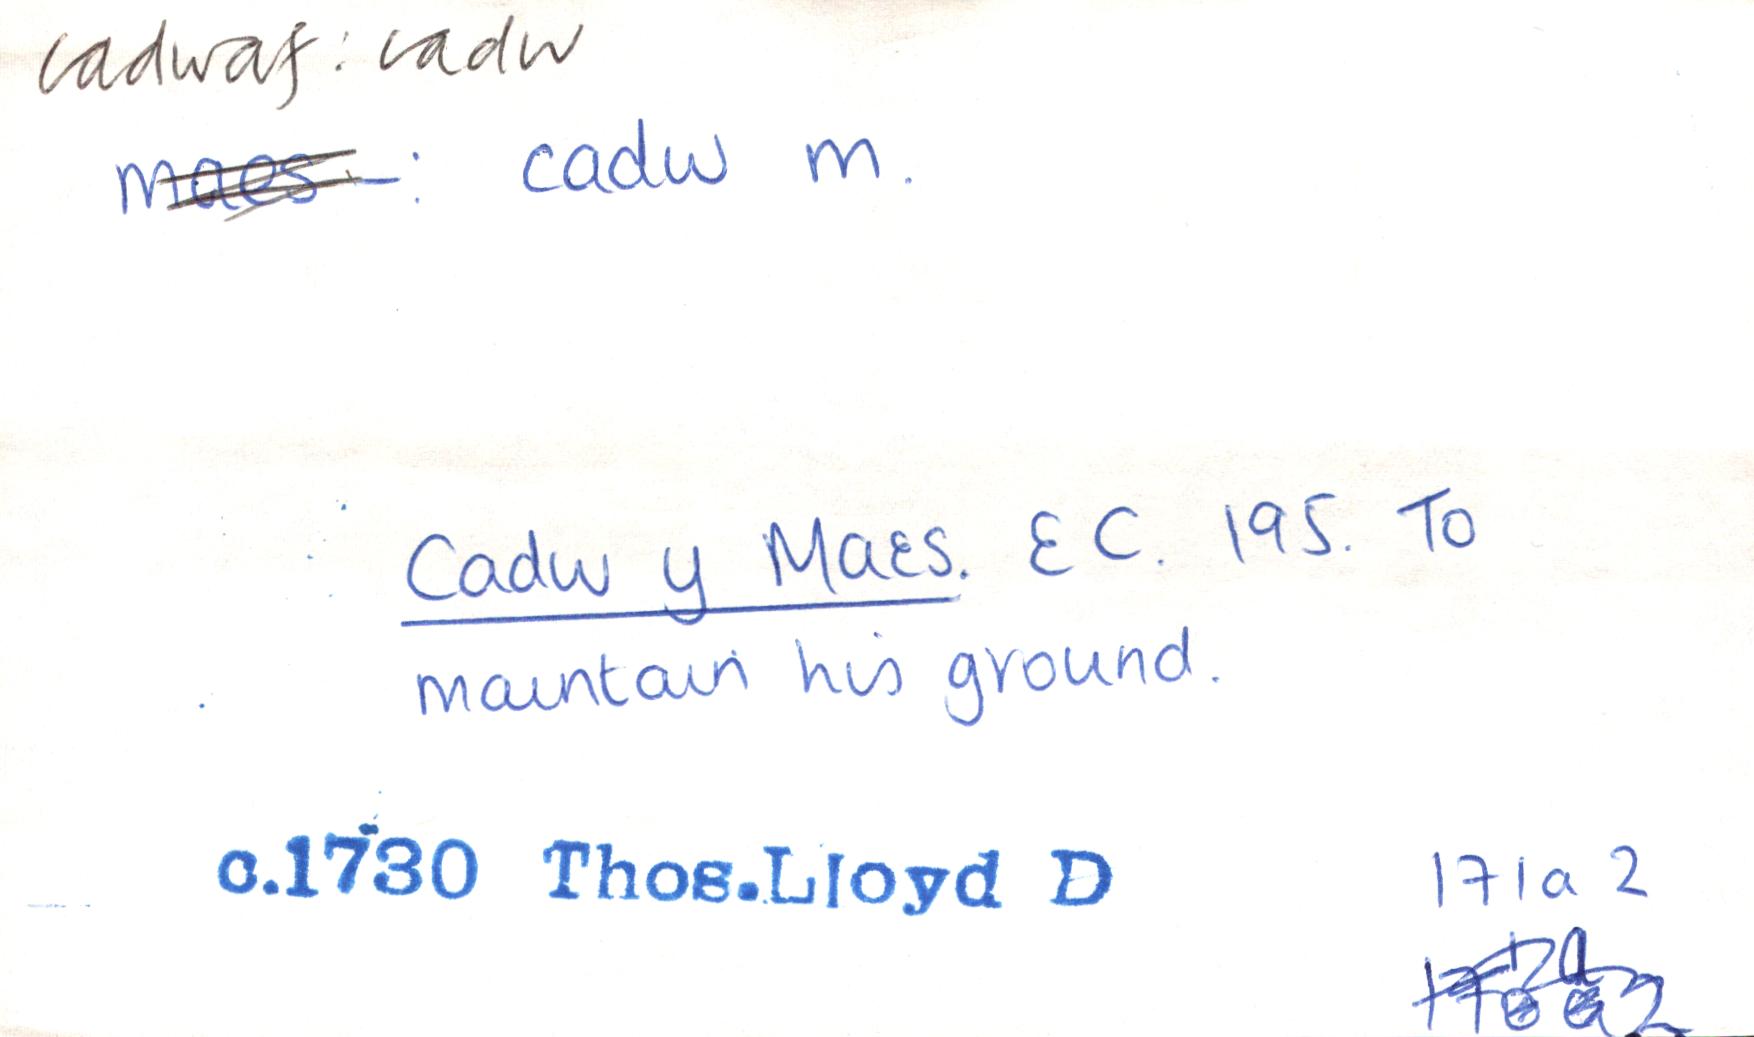 cadwaf: cadw
maes –: cadw m.
Cadw y Maes. EC. 195. To
maintain his ground.
c.1730 Thos.Lloyd D
171a 2